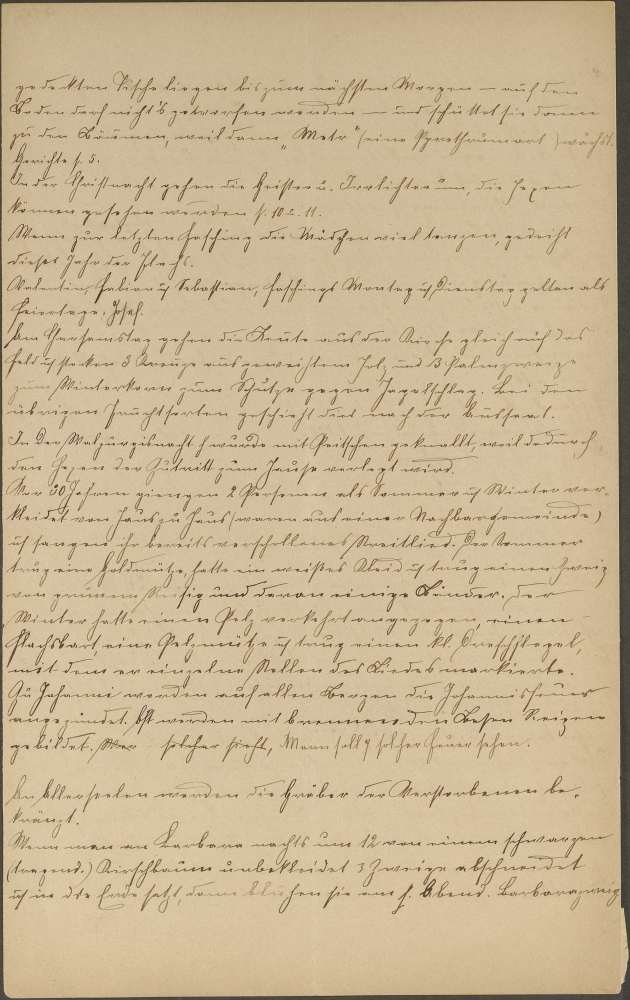 gedekten Tische liegen bis zum nächsten Morgen — auf den
Boden darf nicht's geworfen werden — und schüttet sie dann
zu den Bäumen, weil dann „Metr" (eine Pyrethrumart) wächst.
Gerichte s. 5.
In der Christnacht gehen die Geister u. Irrlichter um, die Hexen
können gesehen werden s. 10 u. 11.
Wenn zur letzten Fasching die Mädchen viel tanzen, gedeiht
dieses Jahr der Flachs.
Valentin, Fabian u Sebastian, Faschings Montag u Dienstag gelten als
Feiertage, Josef.
Am Charsamstag gehen die Leute aus der Kirche gleich auf das
Feld u stecken 3 Kreuze aus geweihtem Holz und 3 Palmzweige
zum Winterkorn zum Schutze gegen Hagelschlag. Bei den
übrigen Fruchtsorten geschieht dies nach der Aussaat.
In der Walpurgisnacht wurde mit Peitschen geknallt, weil dadurch
den Hexen der Zutritt zum Hause verlegt wird.
Vor 30 Jahren giengen 2 Personen als Sommer u Winter ver-
kleidet von Haus zu Haus (waren aus einer Nachbargemeinde)
u sangen ihr bereits verschollenes Streitlied. Der Sommer
trug eine Goldmütze, hatte ein weißes Kleid u trug einen Zweig
von grünem Reisig und daran einige Bänder. Der
Winter hatte einen Pelz verkehrt angezogen, einen
Flachsbart, eine Pelzmütze u trug einen kl. Dreschflegel,
mit dem er einzelne Stellen des Liedes markierte.
Zu Johanni werden auf allen Bergen die Johannisfeuer
angezündet. Oft werden mit brennenden Besen Reigen
gebildet. Wer solcher sieht, Mann soll 7 solcher Feuer sehen.
An Allerseelen werden die Gräber der Verstorbenen be-
kränzt.
Wenn man an Barbara nachts um 12 von einem schwarzen
(tragend.) Kirschbaum unbekleidet 3 Zweige abschneidet
u in die Erde setzt, dann blühen sie am h. Abend. Barbarazweig